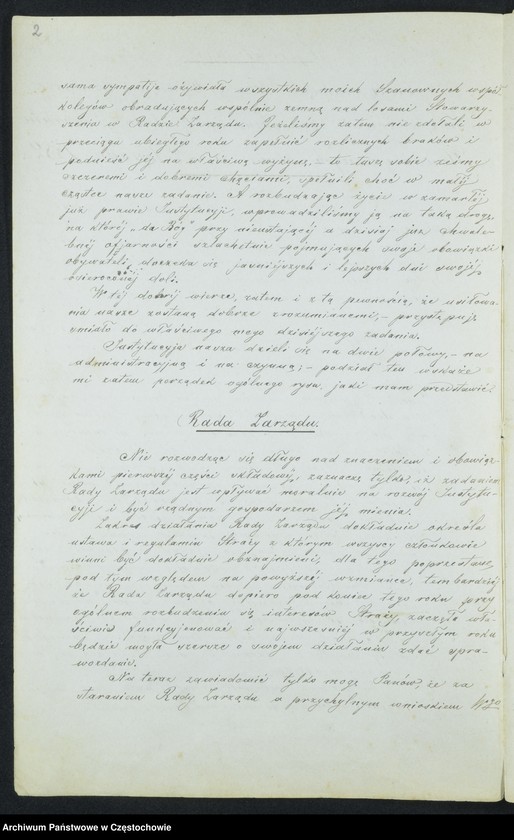 2
sama sympatija ożywiała wszystkich moich Szanownych współ
kolegów obradujących wspólnie zemną nad losami Stowarzy
szenia w Radzie Zarządu. Jeżeliśmy zatem nie zdołali w
przeciągu ubiegłego roku zapełnić rozlicznych braków i
podnieść jej na właściwą wyżynę, – to tusz sobie żeśmy
szczeremi i dobremi chęciami, spełnili choć w małej
cząstce nasze zadanie. A rozbudzając życie w zamarłej
już prawie Instytucyi, wprowadziliśmy ją na taką drogę
na której „da Bóg” przy nieustającej a dzisiaj już chwale-
bnej ofiarności szlachetnie pojmujących swoje obowiązki
obywateli, doczeka się jaśniejszych i lepszych dni swojej
osieroconej doli.
W tej dobrej wierze, zatem i z tą pewnością, że usiłowa-
nia nasze zostaną dobrze zrozumianemi, – przystępuję
śmiało do właściwego mego dzisiejszego zadania.
Instytucyja nasza dzieli się na dwie połowy, – na
administracyjną i na czynną; – podział ten wskaże
mi zatem porządek ogólnego rysu, jaki mam przedstawić.
Rada Zarządu.
Nie rozwodząc się długo nad znaczeniem i obowiąz-
kami pierwszej części składowej, zaznaczę tylko, iż zadaniem
Rady Zarządu jest wpływać moralnie na rozwój Instytu-
cyji i być rządnym gospodarzem jej mienia.
Zakres działania Rady Zarządu dokładnie określa
ustawa i regulamin Straży z którym wszyscy członkowie
winni być dokładnie obznajmieni, dla tego poprzestaję
pod tym względem na powyższej wzmiance, tem bardziej
że Rada Zarządu dopiero pod koniec tego roku przy
ogólnem rozbudzeniu się interesów Straży, zaczęła wła-
ściwie funkcyjonować i najwcześniej w przyszłym roku
będzie mogła szerzej o swojem działaniu zdać spra-
wozdanie.
Na teraz zawiadomić tylko mogę Panów, że za
staraniem Rady Zarządu a przychylnym wnioskiem Wgo
Archiwum Państwowe w Częstochowie